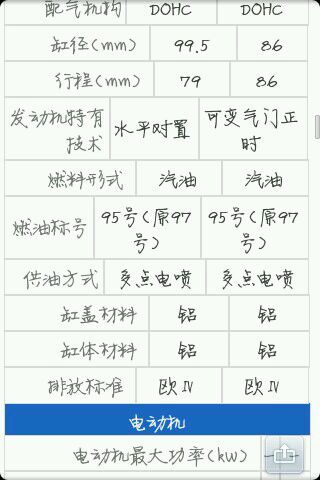 配气机构 DOHC DOHC
缸径(mm) 99.5 86
行程(mm) 79 86
发动机特有 水平对置 可变气门正
技术 时
燃料形式 汽油 汽油
燃油标号 95号(原97 95号(原97
号) 号)
供油方式 多点电喷 多点电喷
缸盖材料 铝 铝
缸体材料 铝 铝
排放标准 欧IV 欧IV
电动机
电动机最大功率(kW)